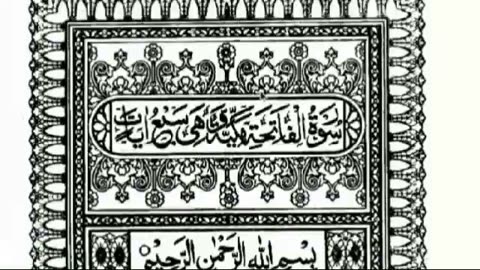 سورة الفاتحة مكية وهي سبع ايات
بسم الله الرحمن الرحيم